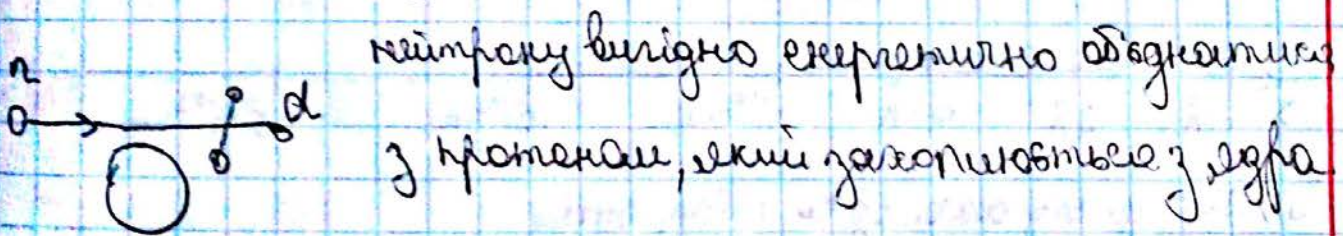 n
нейтрону вигідно енергетично об'єднатися
d
з протоном, який захоплюється з ядра